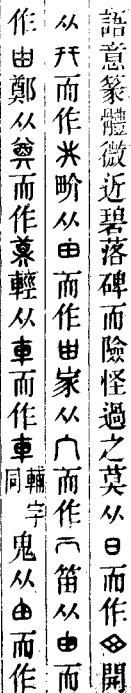 語意篆體微近碧落碑而險怪過之莫从日而作開
从幵而作畍从田而作家从宀而作笛从由而
作鄭从奠而作輕从車而作車輔字同鬼从甶而作